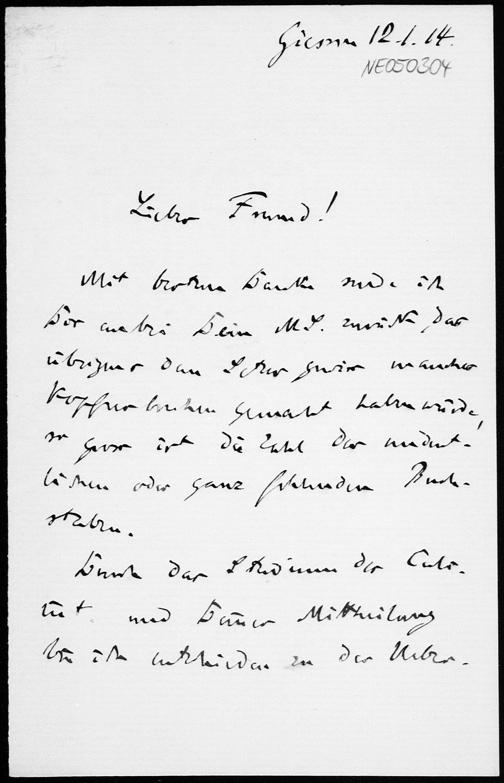 Giessen 12.1.14.
NE050304
Lieber Freund!
Mit bestem Danke sende ich
Dir anbei Dein MS. zurück, das
übrigens dem Setzer gewiss manches
Kopfzerbrechen gemacht haben würde,
so gross ist die Zahl der undeut-
lichen oder ganz fehlenden Buch-
staben.
Durch das Studium der
und Deiner Mittheilung
bin ich entschieden zu der Ueber-